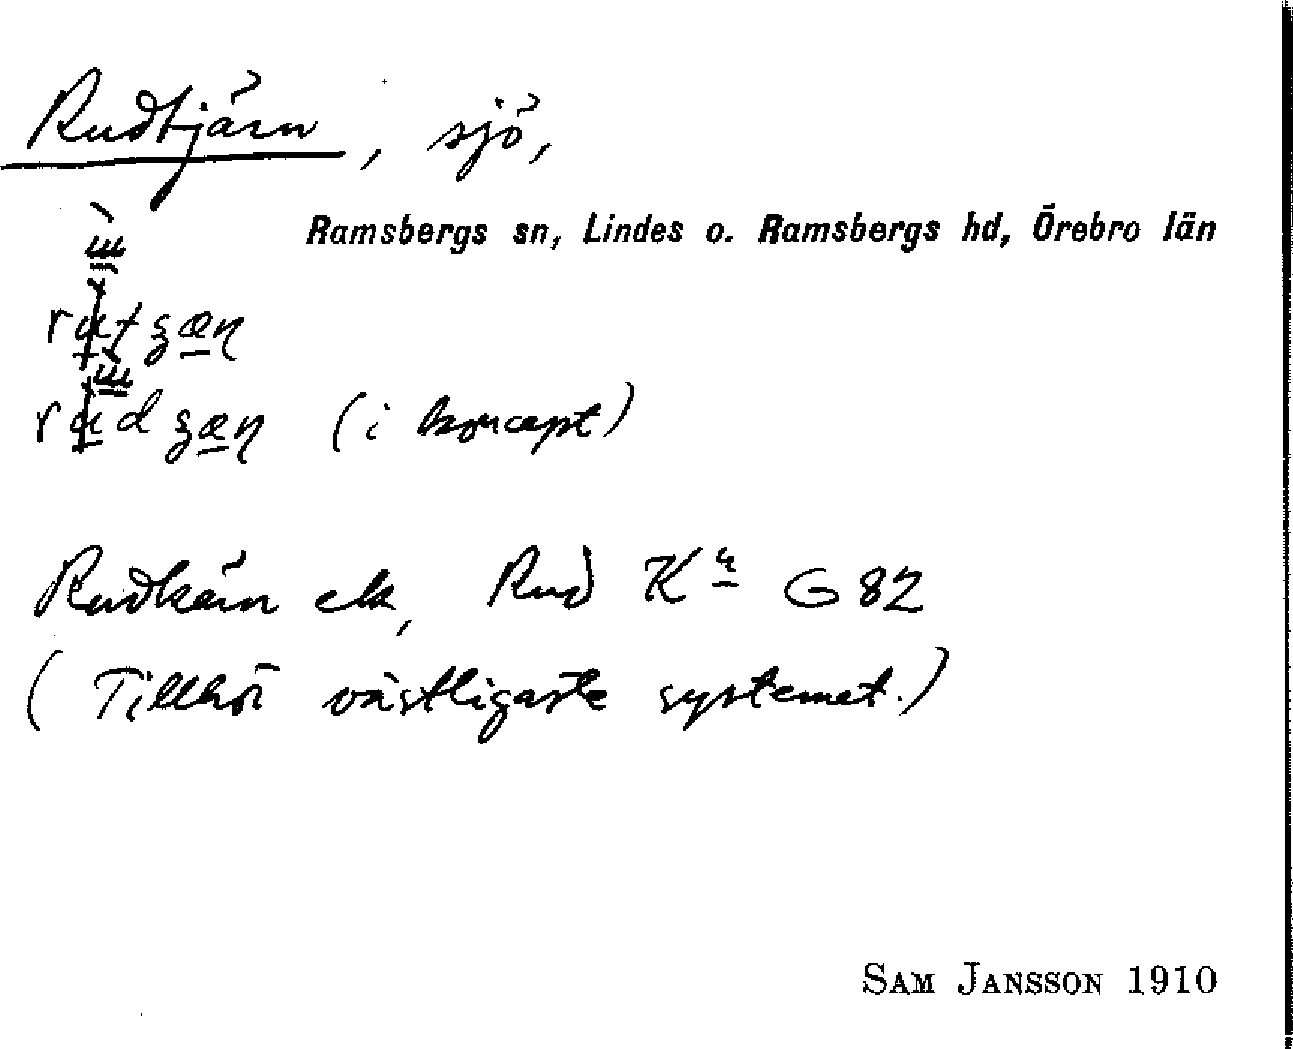 Rudtjärn, sjö,
Ramsbergs sn, Lindes o. Ramsbergs hd, Örebro län
(i koncept)
Rudkärn ek, Rud K G 82
(Tillhör västligaste systemet.)
SAM JANSSON 1910